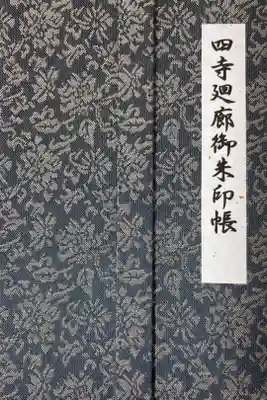 四寺廻廊御朱印帳